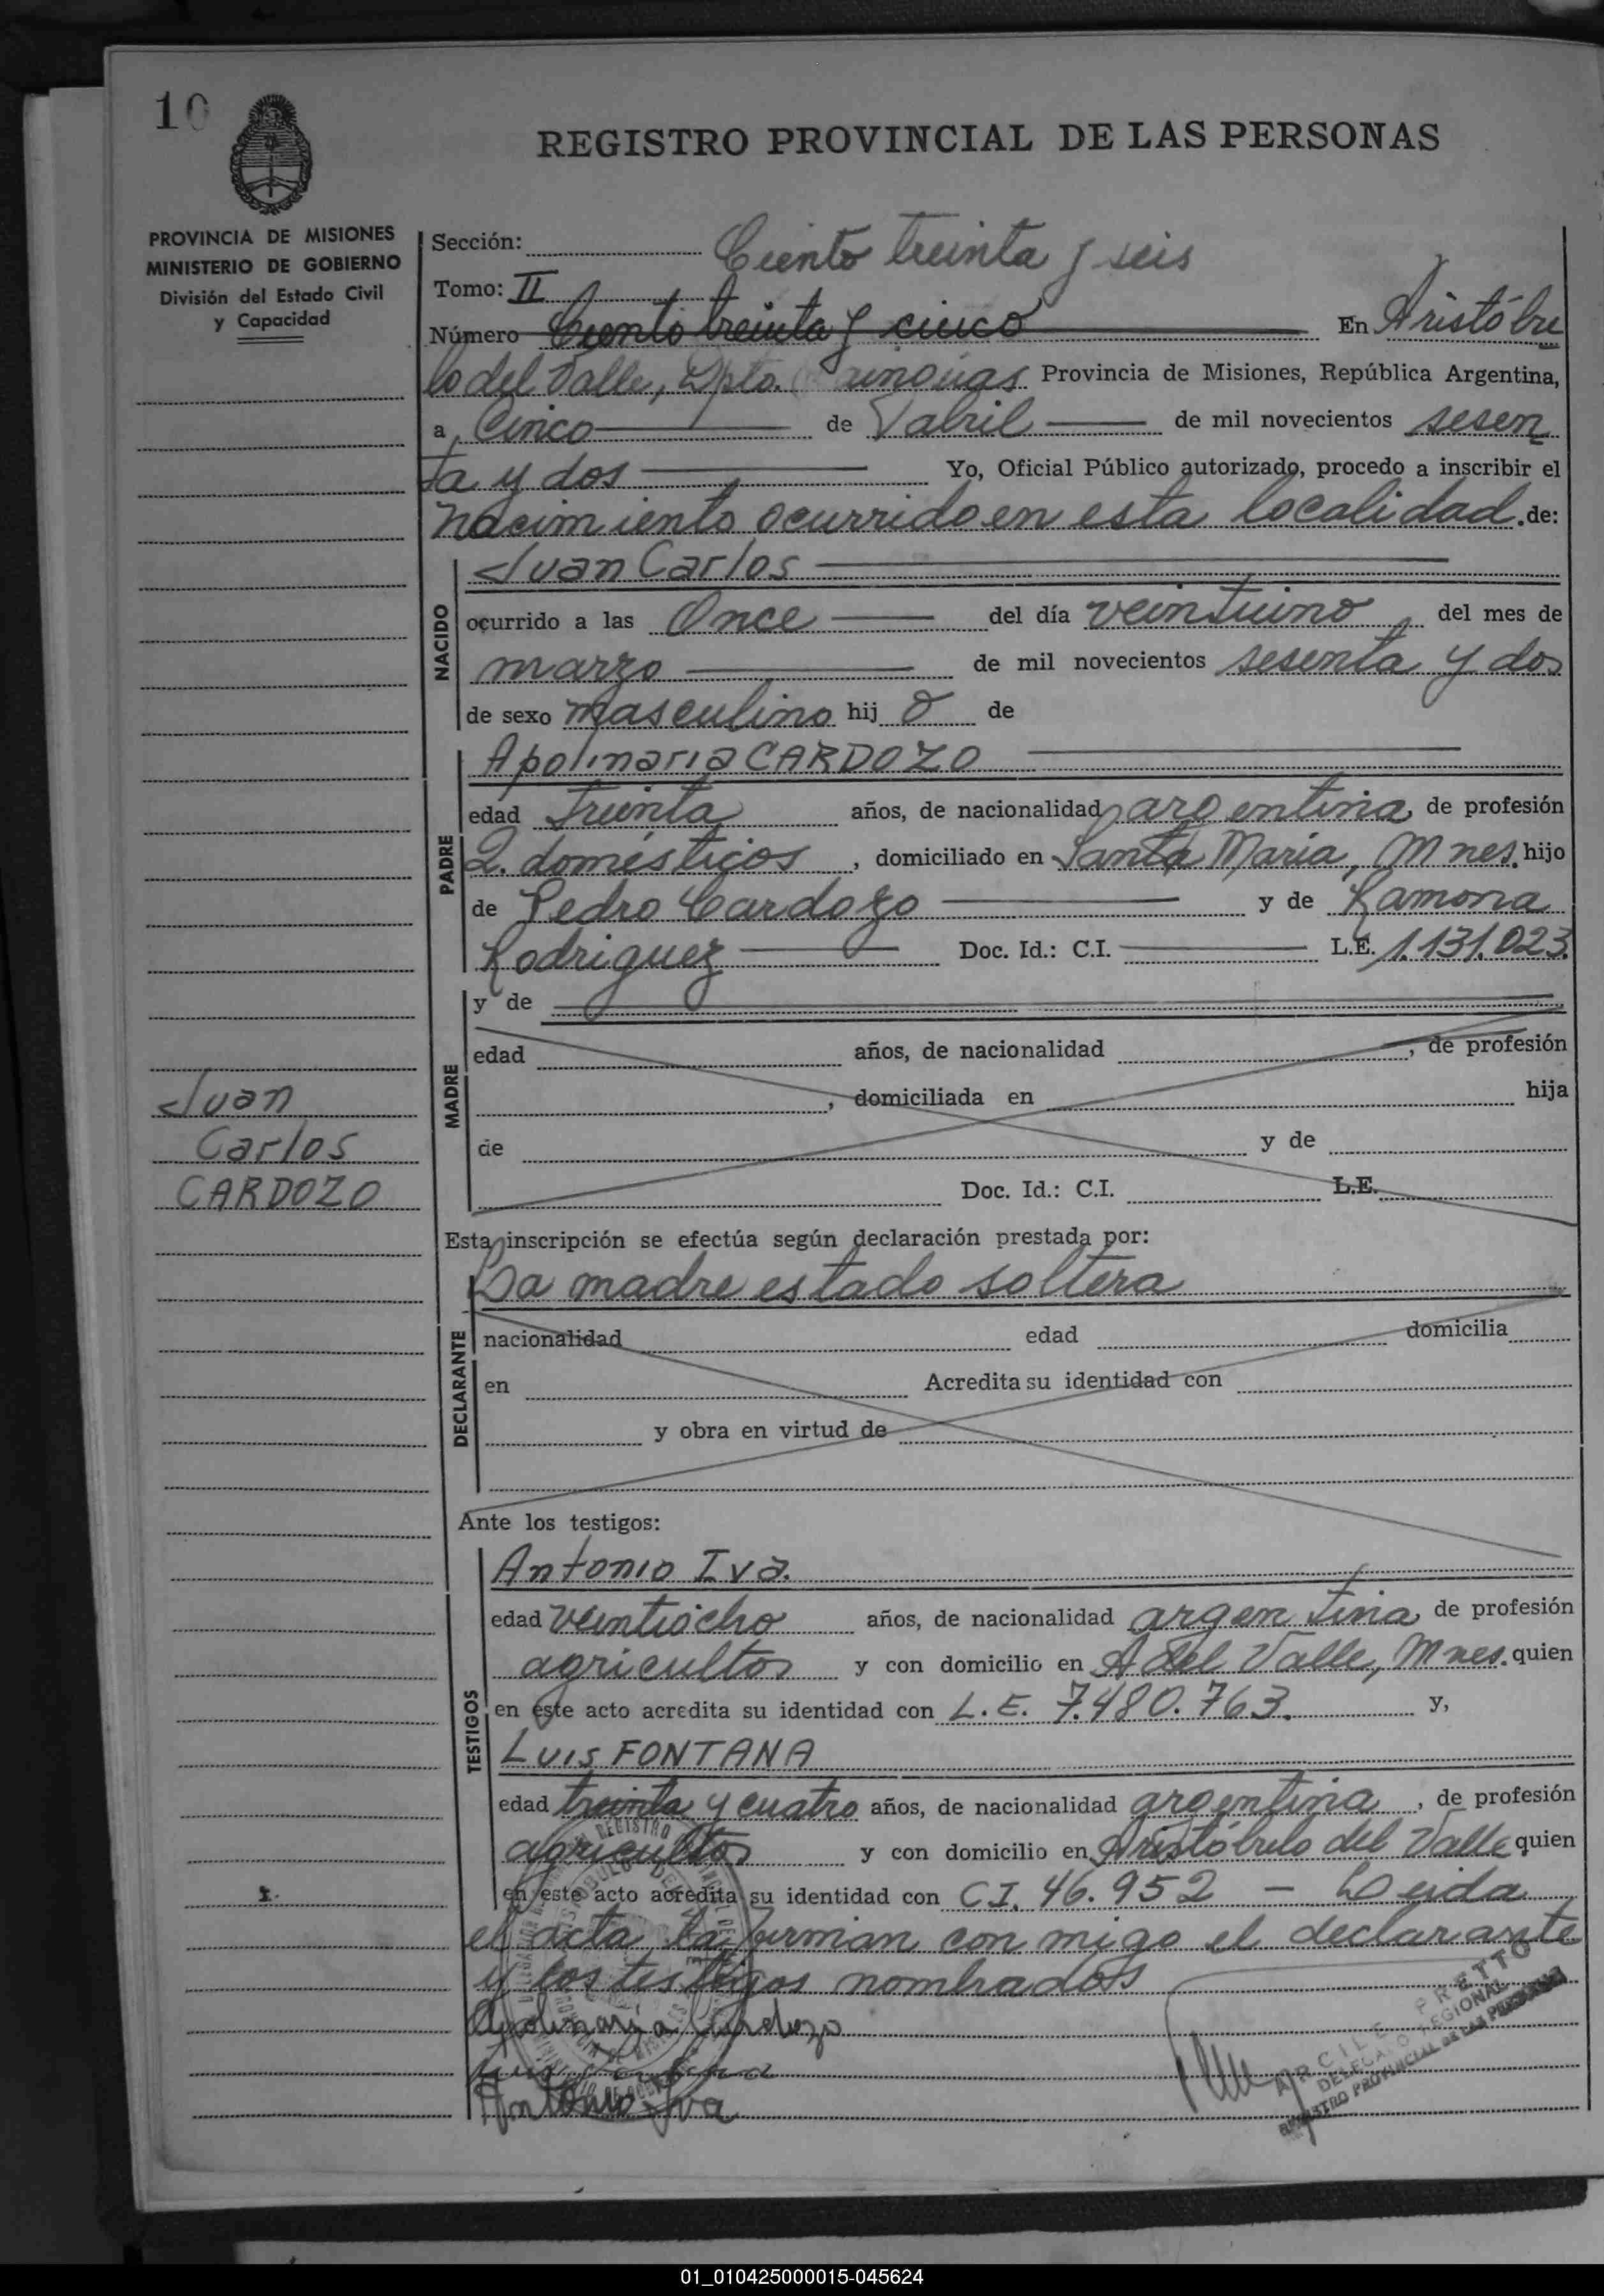 10
REGISTRO PROVINCIAL DE LAS PERSONAS
PROVINCIA DE MISIONES
MINISTERIO DE GOBIERNO
División del Estado Civil
y Capacidad
Sección: Ciento treinta y seis
Tomo: II
Número Ciento treinta y cinco En Aristóbu
lo del Valle, Dpto. Provincia de Misiones, República Argentina,
a Cinco de abril de mil novecientos sesen
ta y dos Yo, Oficial Público autorizado, procedo a inscribir el
nacimiento ocurrido en esta localidad. de:
NACIDO
Juan Carlos
ocurrido a las Once del día veintiuno del mes de
marzo de mil novecientos sesenta y dos
de sexo masculino hij o de
PADRE
Apolinaria CARDOZO
edad treinta años, de nacionalidad argentina, de profesión
Q. domésticos, domiciliado en Santa María, Mnes. hijo
de Pedro Cardozo y de Ramona
Rodriguez Doc. Id.: C.I. L.E. 1.131.023.
MADRE
y de
edad años, de nacionalidad , de profesión
, domiciliada en hija
de y de
Doc. Id.: C.I. L.E.
Juan
Carlos
CARDOZO
Esta inscripción se efectúa según declaración prestada por:
La madre estado soltera
DECLARANTE
nacionalidad edad domicilia
en Acredita su identidad con
y obra en virtud de
Ante los testigos:
TESTIGOS
Antonio Iva.
edad veintiocho años, de nacionalidad argentina, de profesión
agricultor y con domicilio en A del Valle, Mnes. quien
en este acto acredita su identidad con L.E. 7.480.763. y,
Luis FONTANA
edad treinta y cuatro años, de nacionalidad argentina, de profesión
agricultor y con domicilio en Aristóbulo del Valle quien
en este acto acredita su identidad con CI. 46.952 - Leida
el acta, la firman con migo el declarante
y los testigos nombrados
Apolinaria Cardozo
Antonio Iva
PRETTO
DELEGADO REGIONAL
REGISTRO PROVINCIAL DE LAS PERSONAS
01_010425000015-045624